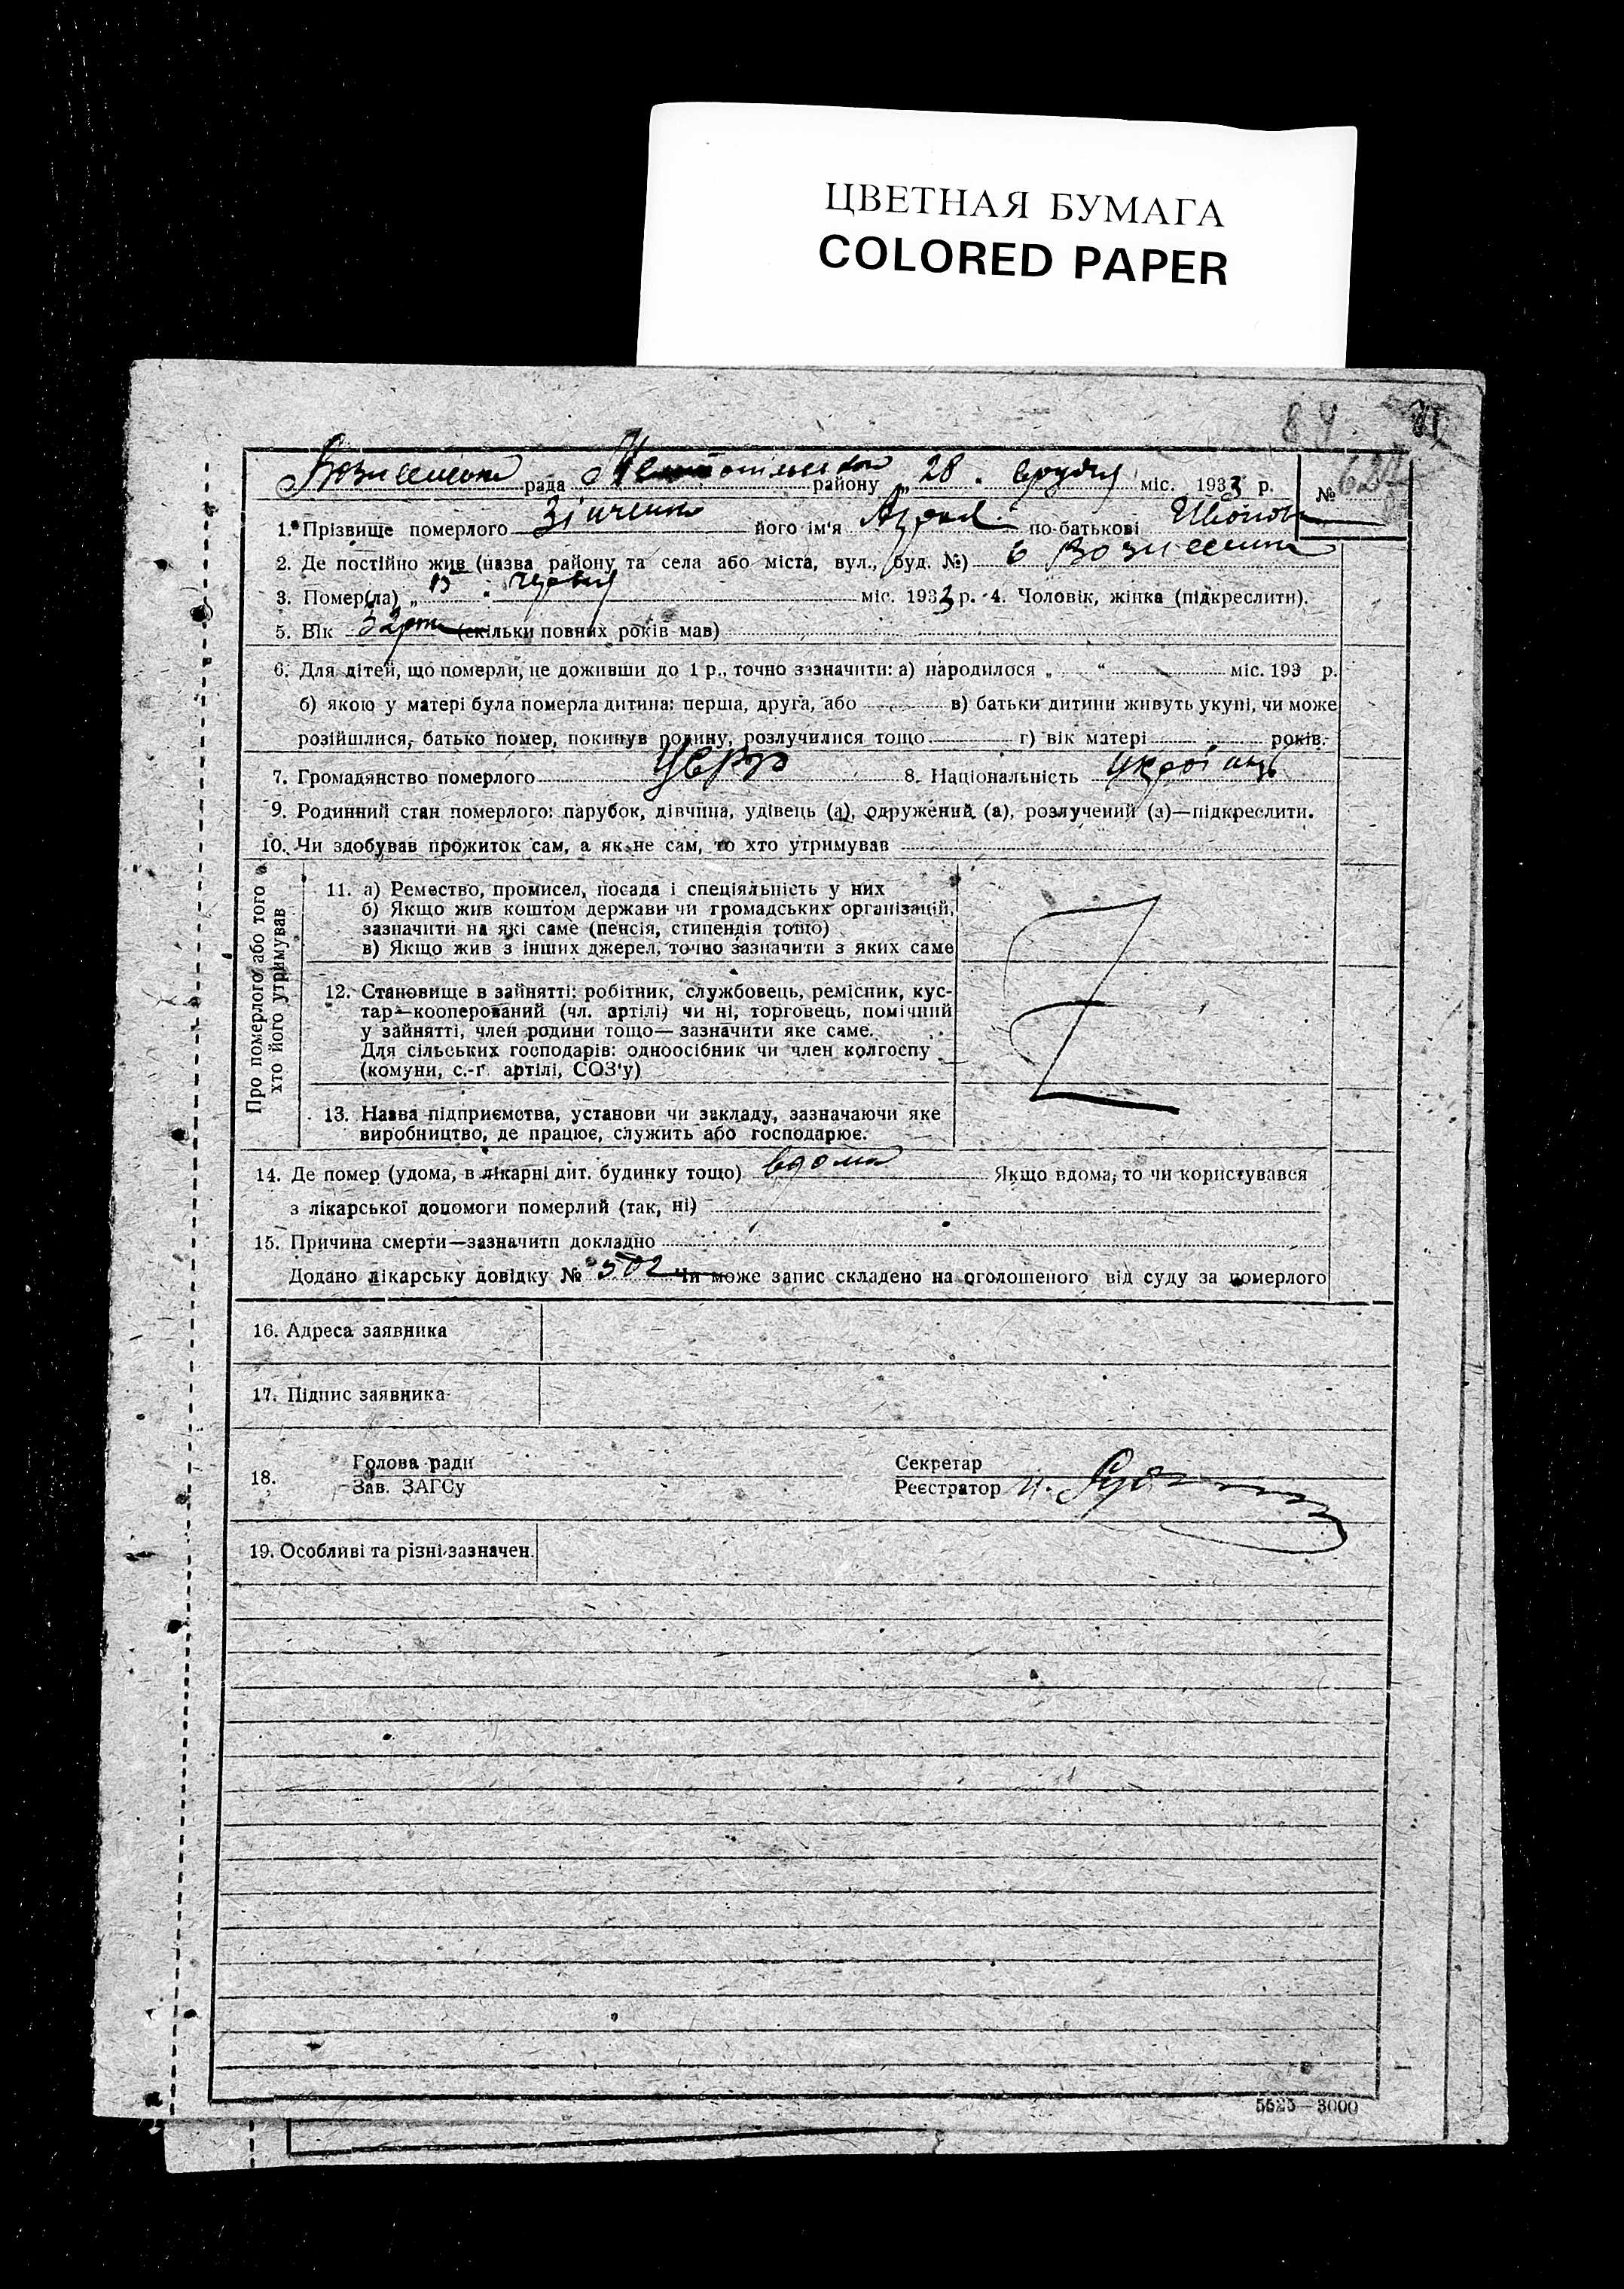 ЦВЕТНАЯ БУМАГА
COLORED PAPER
89
рада району „ 28 " грудня міс. 1933 р. №
1. Прізвище померлого Зінченко його ім'я по-батькові
2. Де постійно жив (назва району та села або міста, вул., буд. №)
3. Помер(ла) „ " червня міс. 1933 р. 4. Чоловік, жінка (підкреслити).
5. Вік (скільки повних років мав)
6. Для дітей, що померли, не доживши до 1 р., точно зазначити: а) народилося „ “ міс. 193 р.
б) якою у матері була померла дитина: перша, друга, або в) батьки дитини живуть укупі, чи може
розійшлися, батько помер, покинув родину, розлучилися тощо г) вік матері років.
7. Громадянство померлого УСРР 8. Національність Українець
9. Родинний стан померлого: парубок, дівчина, удівець (а), одружений (а), розлучений (а)—підкреслити.
10. Чи здобував прожиток сам, а як не сам, то хто утримував
Про померлого або того
хто його утримував
11. а) Ремество, промисел, посада і спеціяльність у них
б) Якщо жив коштом держави чи громадських організацій,
зазначити на які саме (пенсія, стипендія тощо)
в) Якщо жив з інших джерел, точно зазначити з яких саме
12. Становище в зайнятті: робітник, службовець, ремісник, кус-
тар—кооперований (чл. артілі) чи ні, торговець, помічний
у зайнятті, член родини тощо—зазначити яке саме.
Для сільських господарів: одноосібник чи член колгоспу
(комуни, с.-г артілі, СОЗ'у)
13. Назва підприємства, установи чи закладу, зазначаючи яке
виробництво, де працює, служить або господарює.
14. Де помер (удома, в лікарні дит. будинку тощо) вдома Якщо вдома, то чи користувався
з лікарської допомоги померлий (так, ні)
15. Причина смерти—зазначити докладно
Додано лікарську довідку № 502 Чи може запис складено на оголошеного від суду за померлого
16. Адреса заявника
17. Підпис заявника
18. Голова ради Секретар
Зав. ЗАГСу Реєстратор
19. Особливі та різні зазначен.
5525—3000